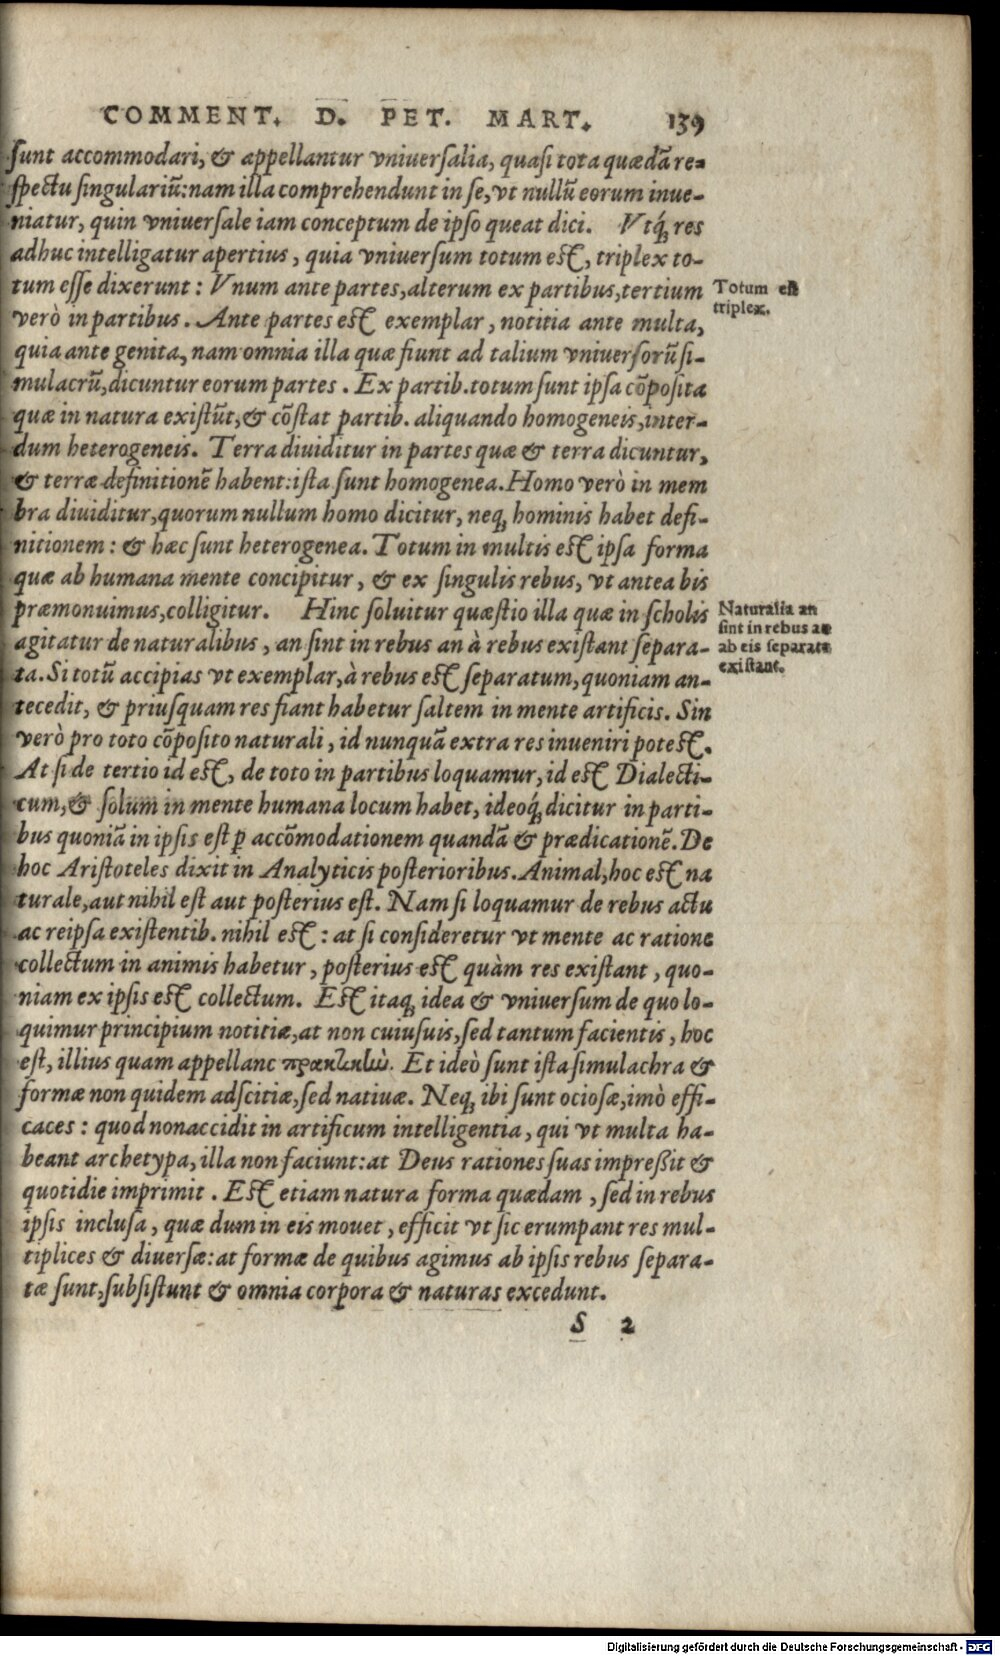 COMMENT. D. PET. MART. 139
sunt accommodari, & appellantur vniuersalia, quasi tota quædā re-
spectu singulariū: nam illa comprehendunt in se, vt nullū eorum inue-
niatur, quin vniuersale iam conceptum de ipso queat dici. Vtq́; res
adhuc intelligatur apertius, quia vniuersum totum est, triplex to-
tum esse dixerunt: Vnum ante partes, alterum ex partibus, tertium
Totum est
triplex.
verò in partibus. Ante partes est exemplar, notitia ante multa,
quia ante genita, nam omnia illa quæ fiunt ad talium vniuersorū si-
mulacrū, dicuntur eorum partes. Ex partib. totum sunt ipsa cōposita
quæ in natura existūt, & cōstat partib. aliquando homogeneis, inter-
dum heterogeneis. Terra diuiditur in partes quæ & terra dicuntur,
& terræ definitionē habent: ista sunt homogenea. Homo verò in mem
bra diuiditur, quorum nullum homo dicitur, neq; hominis habet defi-
nitionem: & hæc sunt heterogenea. Totum in multis est ipsa forma
quæ ab humana mente concipitur, & ex singulis rebus, vt antea bis
præmonuimus, colligitur. Hinc soluitur quæstio illa quæ in scholis
Naturalia an
sint in rebus an
ab eis separata
existant.
agitatur de naturalibus, an sint in rebus an à rebus existant separa-
ta. Si totū accipias vt exemplar, à rebus est separatum, quoniam an-
tecedit, & priusquam res fiant habetur saltem in mente artificis. Sin
verò pro toto cōposito naturali, id nunquā extra res inueniri potest.
At si de tertio id est, de toto in partibus loquamur, id est Dialecti-
cum, & solum in mente humana locum habet, ideoq́; dicitur in parti-
bus quoniā in ipsis est ꝑ accōmodationem quandā & prædicationē. De
hoc Aristoteles dixit in Analyticis posterioribus. Animal, hoc est na
turale, aut nihil est aut posterius est. Nam si loquamur de rebus actu
ac reipsa existentib. nihil est: at si consideretur vt mente ac ratione
collectum in animis habetur, posterius est quàm res existant, quo-
niam ex ipsis est collectum. Est itaq; idea & vniuersum de quo lo-
quimur principium notitiæ, at non cuiusuis, sed tantum facientis, hoc
est, illius quam appellanc πρακτικὼ. Et ideò sunt ista simulachra &
formæ non quidem adscitiæ, sed natiuæ. Neq; ibi sunt ociosæ, imò effi-
caces: quod non accidit in artificum intelligentia, qui vt multa ha-
beant archetypa, illa non faciunt: at Deus rationes suas impreßit &
quotidie imprimit. Est etiam natura forma quædam, sed in rebus
ipsis inclusa, quæ dum in eis mouet, efficit vt sic erumpant res mul-
tiplices & diuersæ: at formæ de quibus agimus ab ipsis rebus separa-
tæ sunt, subsistunt & omnia corpora & naturas excedunt.
S 2
Digitalisierung gefördert durch die Deutsche Forschungsgemeinschaft - DFG